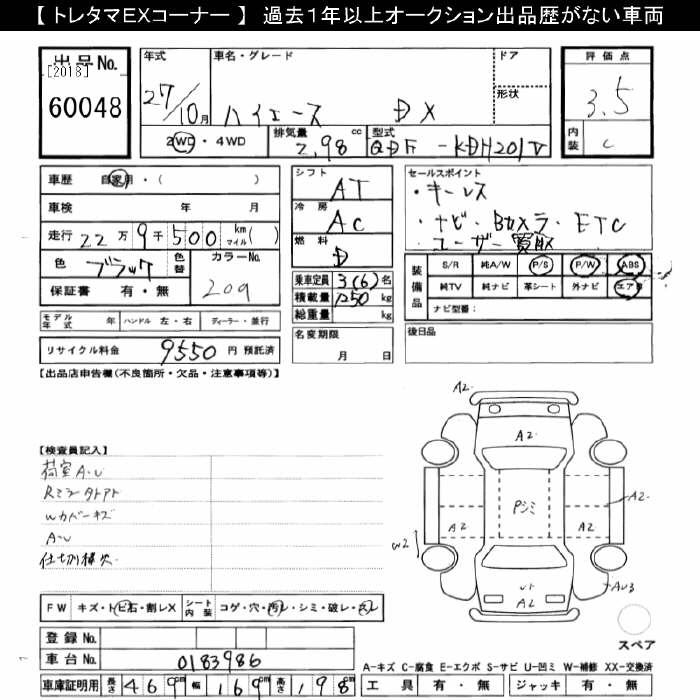 【 トレタマEXコーナー 】 過去１年以上オークション出品歴がない車両
出品No.
[2018]
60048
年式
27/10月
車名・グレード
ハイエース DX
ドア
形状
評価点
3.5
内装
C
2WD・4WD
排気量 2.98 cc
型式 QDF-KDH201V
車歴 自家用・( )
車検 年 月
走行 22万9千500 km マイル( )
色 ブラック 色替
カラーNo. 209
保証書 有・無
シフト
AT
冷房
AC
燃料
D
乗車定員 3(6)名
積載量 1250 kg
総重量 kg
セールスポイント
・キーレス
・ナビ・Bカメラ・ETC
・ユーザー買取
装備品
S/R 純A/W P/S P/W ABS
純TV 純ナビ 革シート 外ナビ エアB
ナビ型番:
モデル年式 年 ハンドル 左・右 ディーラー・並行
リサイクル料金 9550 円 預託済
名変期限
月 日
後日品
【出品店申告欄(不良箇所・欠品・注意事項等)】
【検査員記入】
荷室A・U
Wカバーキズ
A・U
仕切棒欠
A2
A2
Pシミ
A2
A2
A2
A2
W2
A2
AU3
FW キズ・トビ石・割レX
シート内装 コゲ・穴・汚レ・シミ・破レ・スレ
登録No.
車台No. 0183986
車庫証明用 長さ 469cm 幅 169cm 高さ 198cm
スペア
A-キズ C-腐食 E-エクボ S-サビ U-凹ミ W-補修 XX-交換済
工具 有・無 ジャッキ 有・無